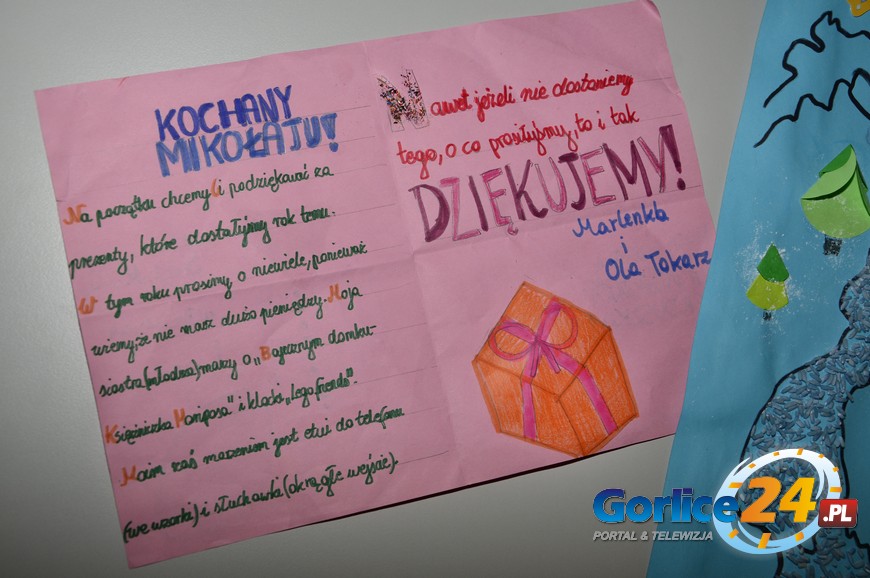 KOCHANY
MIKOŁAJU!
Na początku chcemy Ci podziękować za
prezenty, które dostałyśmy rok temu.
W tym roku prosimy o niewiele, ponieważ
wiemy, że nie masz dużo pieniędzy. Moja
siostra (młodsza) marzy o „Bajecznym domku -
Księżniczka Mariposa" i klocki „Lego friends".
Moim zaś marzeniem jest etui do telefonu
(we wzorki) i słuchawki (okrągłe wejście).
Nawet jeżeli nie dostaniemy
tego, o co prosiłyśmy, to i tak
DZIĘKUJEMY!
Marlenka
i
Ola Tokarz
Gorlice24.PL
PORTAL & TELEWIZJA